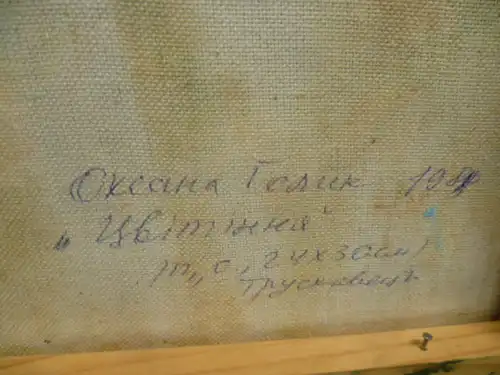 Оксана Голик
„Цвітіння"
т,, о, 24х30см)
Трускавець